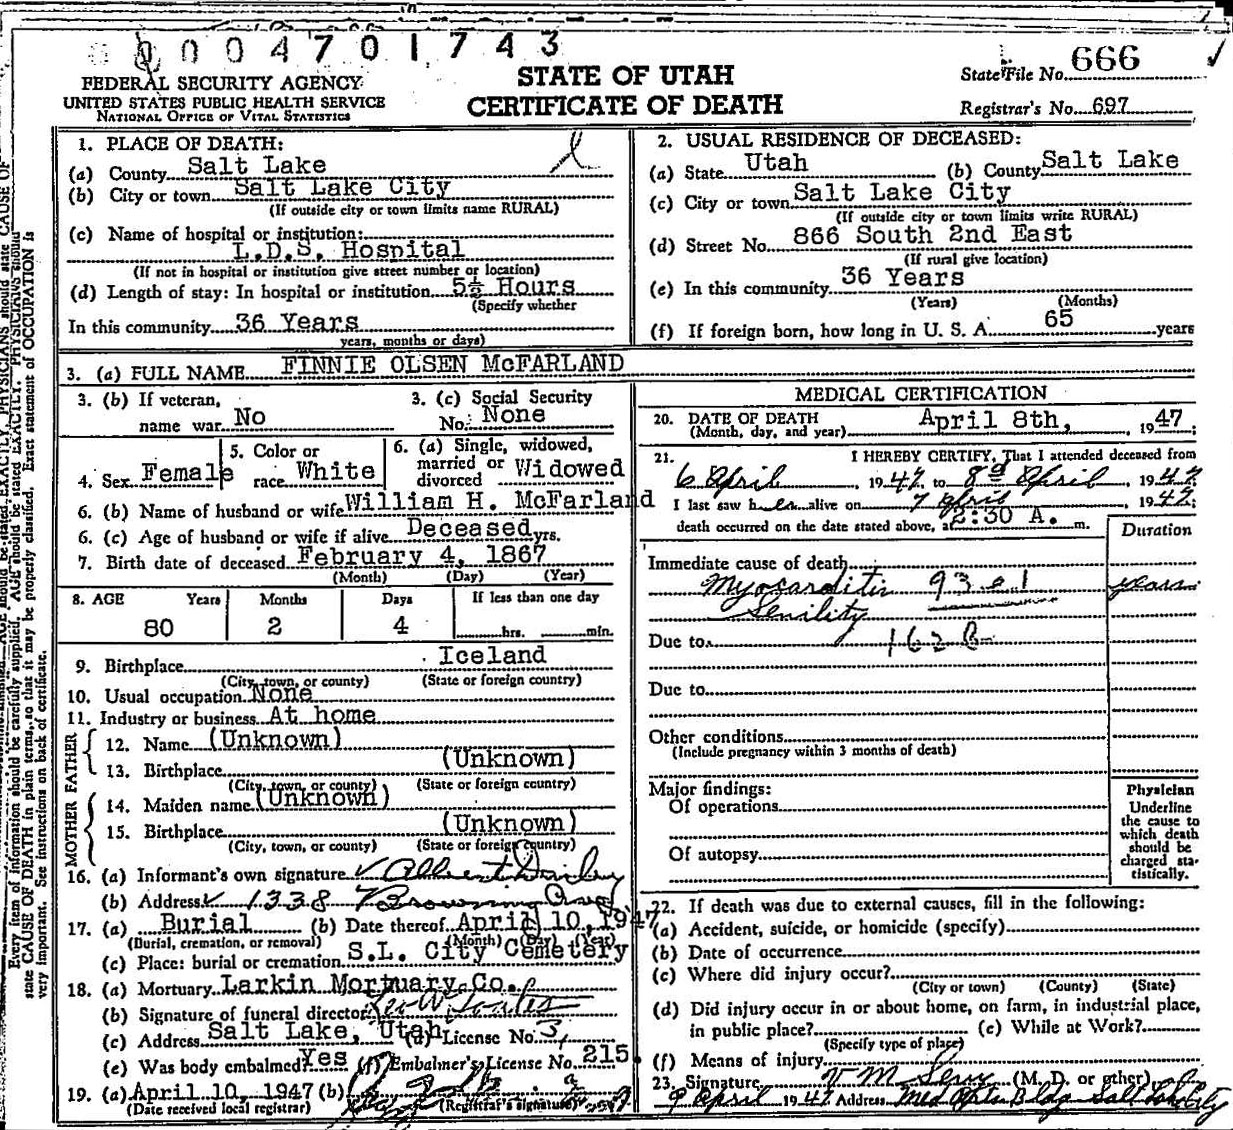 0004701743
FEDERAL SECURITY AGENCY
UNITED STATES PUBLIC HEALTH SERVICE
NATIONAL OFFICE OF VITAL STATISTICS
STATE OF UTAH
CERTIFICATE OF DEATH
State File No. 666
Registrar's No. 697
1. PLACE OF DEATH:
(a) County Salt Lake
(b) City or town Salt Lake City
(If outside city or town limits name RURAL)
(c) Name of hospital or institution:
L.D.S. Hospital
(If not in hospital or institution give street number or location)
(d) Length of stay: In hospital or institution 5½ Hours
(Specify whether
In this community 36 Years
years, months or days)
2. USUAL RESIDENCE OF DECEASED:
(a) State Utah (b) County Salt Lake
(c) City or town Salt Lake City
(If outside city or town limits write RURAL)
(d) Street No. 866 South 2nd East
(If rural give location)
(e) In this community 36 Years
(Years) (Months)
(f) If foreign born, how long in U. S. A. 65 years
3. (a) FULL NAME FINNIE OLSEN McFARLAND
3. (b) If veteran,
name war No
3. (c) Social Security
No. None
4. Sex Female
5. Color or
race White
6. (a) Single, widowed,
married or
divorced Widowed
6. (b) Name of husband or wife William H. McFarland
6. (c) Age of husband or wife if alive Deceased yrs.
7. Birth date of deceased February 4, 1867
(Month) (Day) (Year)
8. AGE Years Months Days If less than one day
80 2 4 hrs. min.
9. Birthplace Iceland
(City, town, or county) (State or foreign country)
10. Usual occupation None
11. Industry or business At home
FATHER
12. Name (Unknown)
13. Birthplace (Unknown)
(City, town, or county) (State or foreign country)
MOTHER
14. Maiden name (Unknown)
15. Birthplace (Unknown)
(City, town, or county) (State or foreign country)
16. (a) Informant's own signature Albert
(b) Address 1338 Browning Ave
17. (a) Burial (b) Date thereof April 10, 1947
(Burial, cremation, or removal) (Month) (Day) (Year)
(c) Place: burial or cremation S.L. City Cemetery
18. (a) Mortuary Larkin Mortuary Co.
(b) Signature of funeral director
(c) Address Salt Lake, Utah (d) License No. 3
(e) Was body embalmed? Yes (f) Embalmer's License No. 215.
19. (a) April 10, 1947 (b)
(Date received local registrar) (Registrar's signature)
MEDICAL CERTIFICATION
20. DATE OF DEATH
(Month, day, and year) April 8th, 1947;
21. I HEREBY CERTIFY, That I attended deceased from
6 April, 1947 to 8 April, 1947;
I last saw her alive on 7 April, 1947;
death occurred on the date stated above, at 2:30 A. m.
Duration
Immediate cause of death
Myocarditis 93 e 1 years
Senility
Due to 162 b
Due to
Other conditions
(Include pregnancy within 3 months of death)
Major findings:
Of operations
Of autopsy
Physician
Underline
the cause to
which death
should be
charged sta-
tistically.
22. If death was due to external causes, fill in the following:
(a) Accident, suicide, or homicide (specify)
(b) Date of occurrence
(c) Where did injury occur?
(City or town) (County) (State)
(d) Did injury occur in or about home, on farm, in industrial place,
in public place? (e) While at Work?
(Specify type of place)
(f) Means of injury
23. Signature (M. D. or other)
9 April 1947 Address Med Arts Bldg Salt Lake City
Every item of information should be carefully supplied. AGE should be stated EXACTLY. PHYSICIANS should
state CAUSE OF DEATH in plain terms, so that it may be properly classified. Exact statement of OCCUPATION is
very important. See instructions on back of certificate.